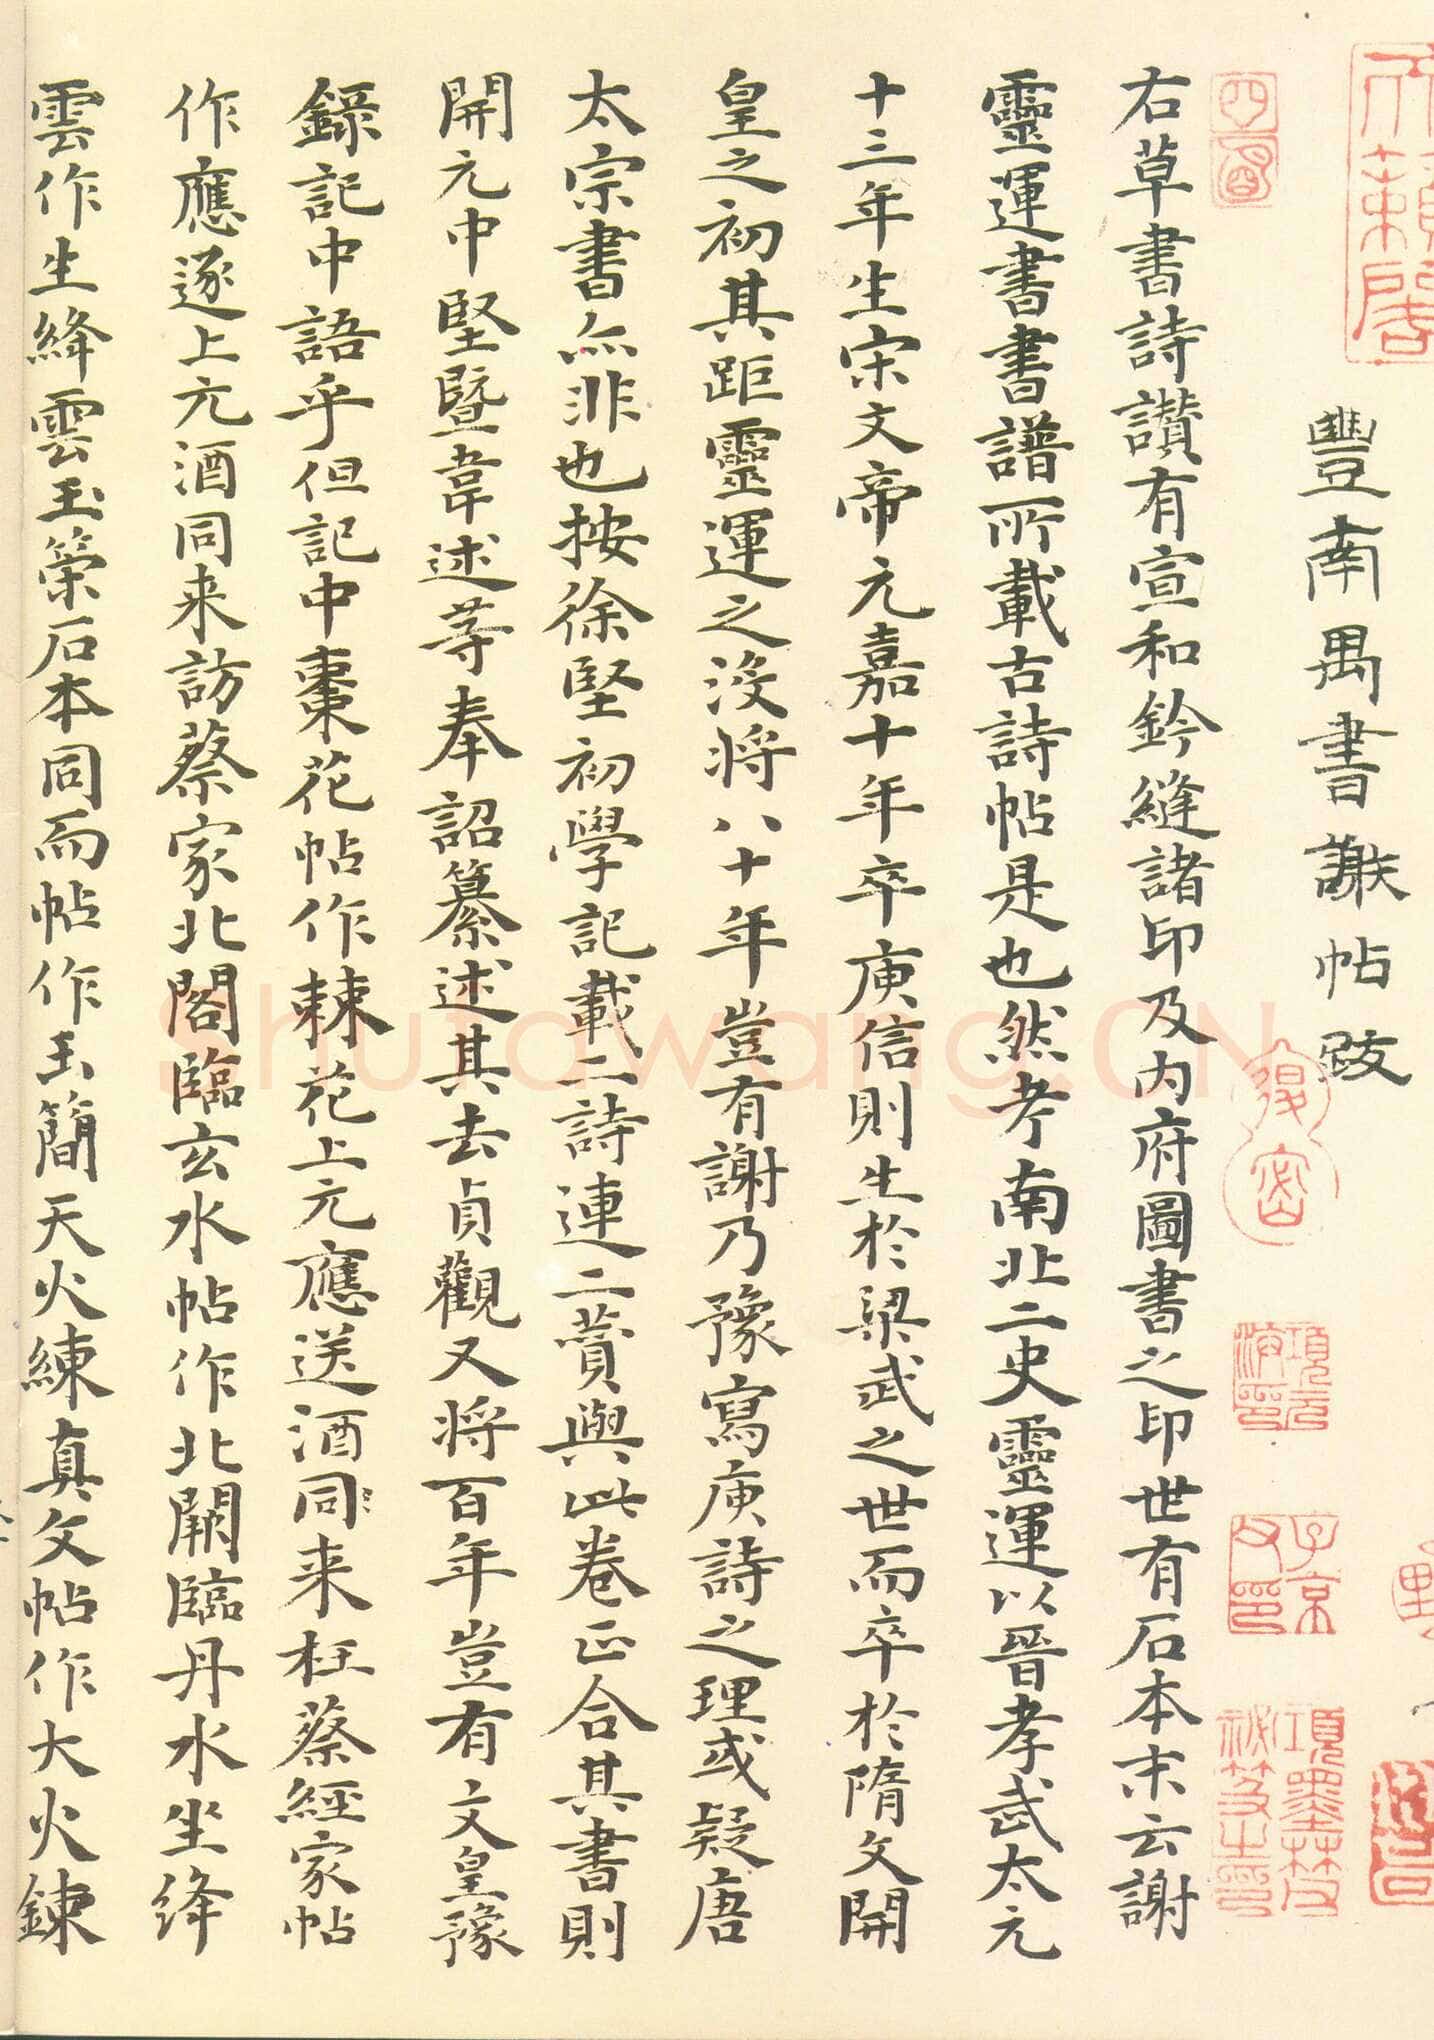 豐南禺書謝帖跋
右草書詩讚有宣和鈐縫諸印及內府圖書之印世有石本末云謝
靈運書書譜所載古詩帖是也然考南北二史靈運以晉孝武太元
十三年生宋文帝元嘉十年卒庾信則生於梁武之世而卒於隋文開
皇之初其距靈運之沒將八十年豈有謝乃豫寫庾詩之理或疑唐
太宗書亦非也按徐堅初學記載二詩連二贊與此卷正合其書則
開元中堅暨韋述等奉詔纂述其去貞觀又將百年豈有文皇豫
錄記中語乎但記中棗花帖作棘花上元應送酒同来枉蔡經家帖
作應逐上元酒同来訪蔡家北閣臨玄水帖作北闕臨丹水坐絳
雲作生絳雲玉策石本同而帖作玉簡天火練真文帖作大火鍊
shufawang.CN
項元汴印
子京父印
項墨林秘笈之印